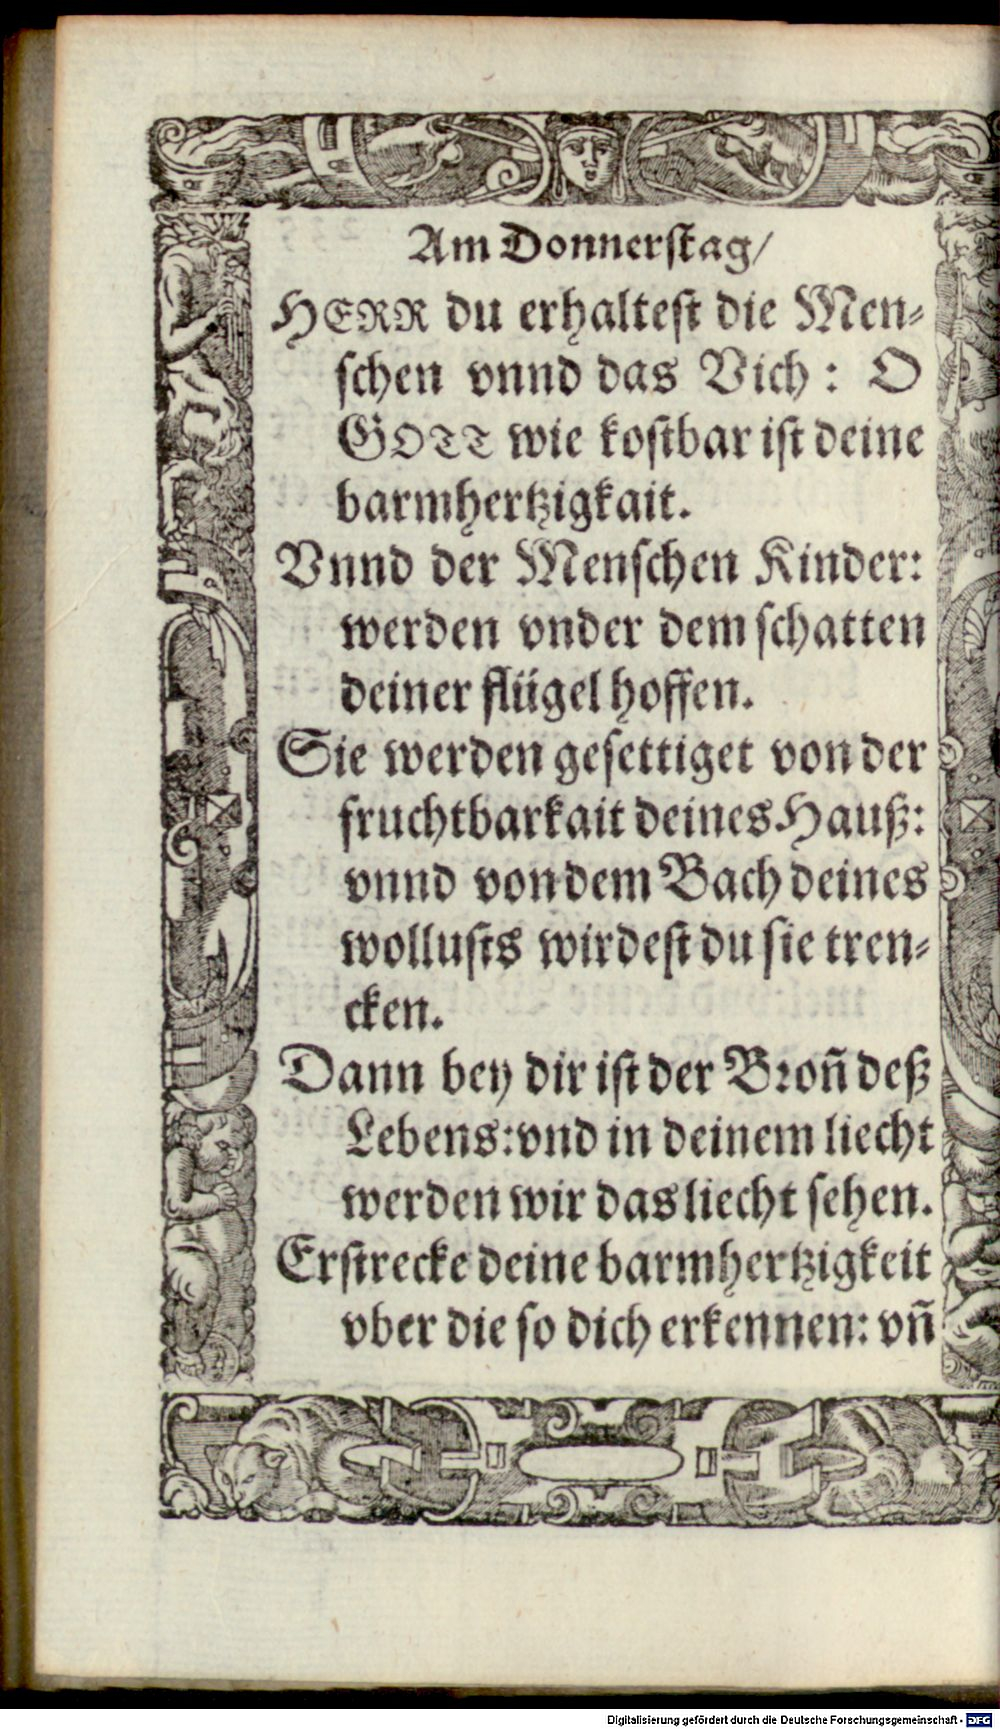 Am Donnerstag/
HERR du erhaltest die Men⸗
schen vnnd das Vich: O
GOTT wie kostbar ist deine
barmhertzigkait.
Vnnd der Menschen Kinder:
werden vnder dem schatten
deiner flügel hoffen.
Sie werden gesettiget von der
fruchtbarkait deines Hauß:
vnnd von dem Bach deines
wollusts wirdest du sie tren⸗
cken.
Dann bey dir ist der Bron̄ deß
Lebens: vnd in deinem liecht
werden wir das liecht sehen.
Erstrecke deine barmhertzigkeit
vber die so dich erkennen: vn̄
Digitalisierung gefördert durch die Deutsche Forschungsgemeinschaft - DFG